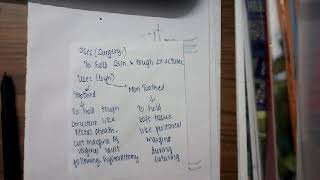 Uses (Surgery)
To hold skin & tough structures
Uses (Gyn)
Toothed
Non Toothed
To hold tough
structure like
rectus sheath.
cut margins of
vaginal vault
following hysterectomy
To hold
soft tissue
like peritoneal
margins
during
suturing